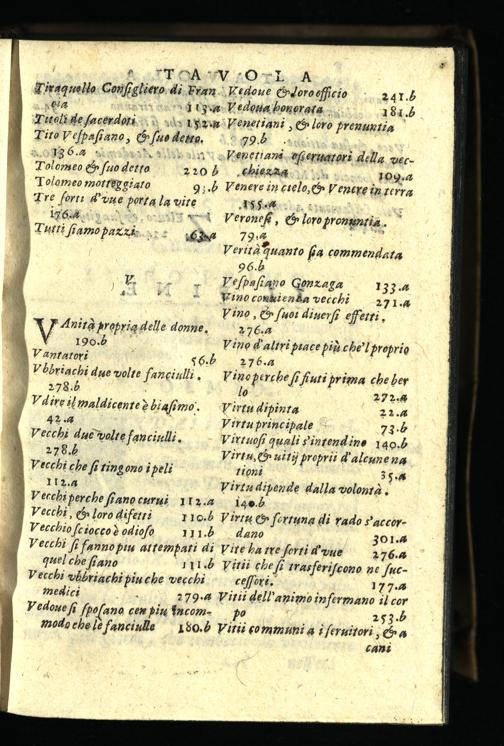 TAVOLA
Tiraquello Consigliero di Fran
cia 113.a
Titoli de sacerdoti 152.a
Tito Vespasiano, & suo detto.
136.a
Tolomeo & suo detto 220 b
Tolomeo motteggiato 93.b
Tre sorti d'vue porta la vite
176.a
Tutti siamo pazzi 63.a
V
VAnità propria delle donne.
190.b
Vantatori 56.b
Vbbriachi due volte fanciulli.
278.b
Vdire il maldicente è biasimo.
42.a
Vecchi due volte fanciulli.
278.b
Vecchi che si tingono i peli
112.a
Vecchi perche siano curui 112.a
Vecchi, & loro difetti 110.b
Vecchio sciocco è odioso 111.b
Vecchi si fanno piu attempati di
quel che siano 111.b
Vecchi vbbriachi piu che vecchi
medici 279.a
Vedoue si sposano con piu incom-
modo che lè fanciulle 180.b
Vedoue & loro officio 241.b
Vedoua honorata 181.b
Venetiani, & loro pronuntia
79.b
Venetiani osseruatori della vec-
chiezza 109.a
Venere in cielo, & Venere in terra
155.a
Veronesi, & loro pronuntia.
79.a
Verità quanto sia commendata
96.b
Vespasiano Gonzaga 133.a
Vino conuien a vecchi 271.a
Vino, & suoi diuersi effetti.
276.a
Vino d'altri piace più che'l proprio
276.a
Vino perche si fiuti prima che ber
lo 272.a
Virtu dipinta 22.a
Virtu principale 73.b
Virtuosi quali s'intendino 140.b
Virtu, & uitij proprii d'alcune na
tioni 35.a
Virtu dipende dalla volontà.
140.b
Virtu & fortuna di rado s'accor-
dano 301.a
Vite ha tre sorti d'vue 276.a
Vitii che si trasferiscono ne suc-
cessori. 177.a
Vitii dell'animo infermano il cor
po 253.b
Vitii communi a i seruitori, & a
cani